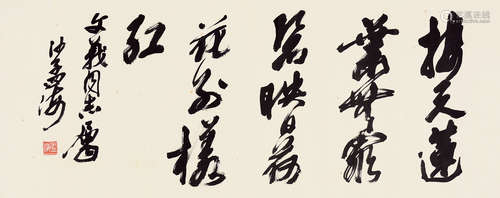 接天莲
叶无穷
碧映日荷
花别样
红
文义同志属
沙孟海